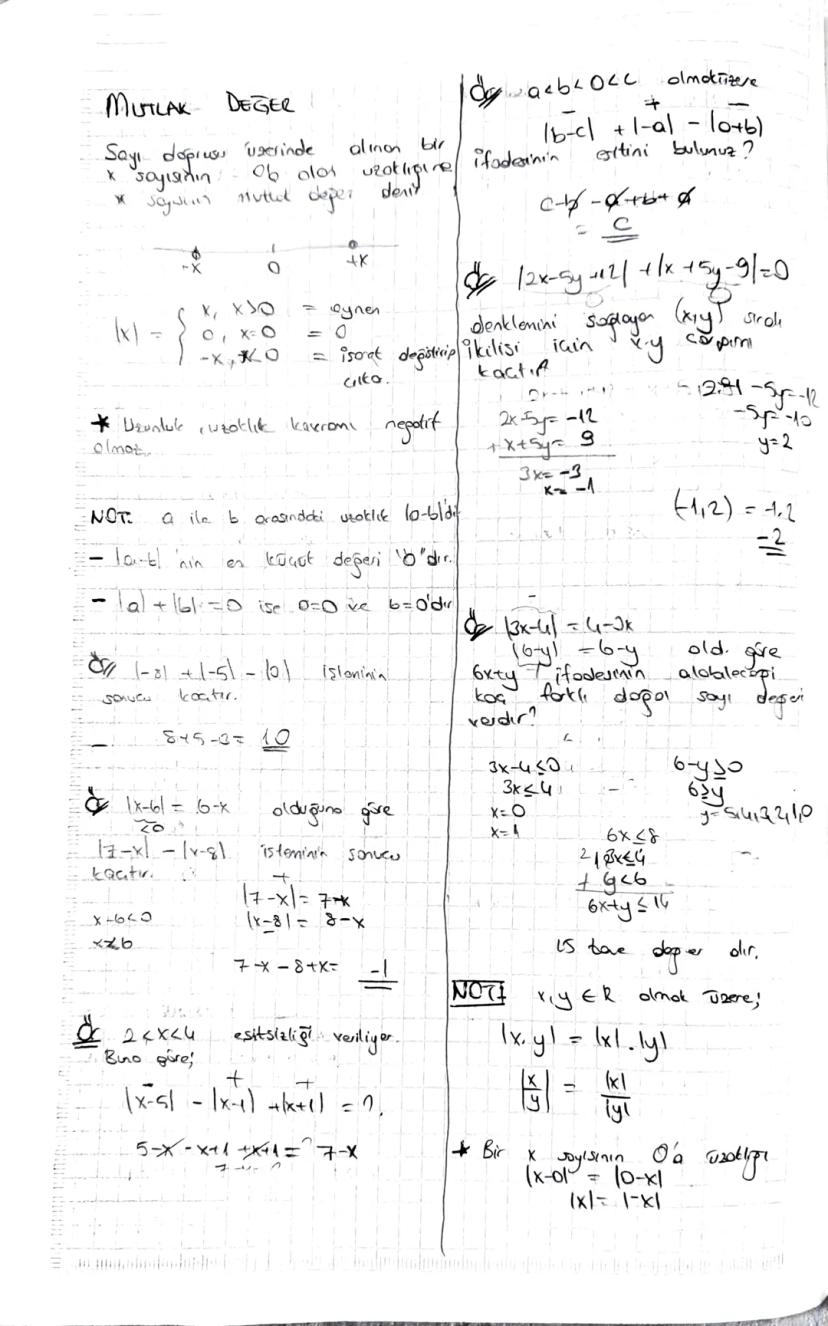 MUTLAK DEĞER
Sayı doğrusu üzerinde alınan bir
x sayısının 0'a olan uzaklığına
x sayısının mutlak değeri denir
-x 0 +x
|x| = { x, x>0 = aynen
0, x=0 = 0
-x, x<0 = işaret değiştirip
çıkar.
* Uzunluk, uzaklık kavramı negatif
olmaz.
NOT: a ile b arasındaki uzaklık |a-b|'dir
- |a-b| 'nin en küçük değeri "0"dır.
- |a| + |b| = 0 ise a=0 ve b=0'dır
Ör/ |-8| + |-5| - |3| işleminin
sonucu kaçtır.
8+5-3= 10
Ör |x-6| = 6-x olduğuna göre
≤0
|7-x| - |x-8| işleminin sonucu
kaçtır.
+
|7-x| = 7-x
x-6<0 |x-8| = 8-x
x<6
7-x-8+x= -1
Ör 2<x<4 eşitsizliği veriliyor.
Buna göre;
- + +
|x-5| - |x-1| + |x+1| = ?
5-x-x+1+x+1= 7-x
Ör a<b<0<c olmak üzere
- + -
|b-c| + |-a| - |a+b|
ifadesinin eşitini bulunuz?
c-b-a+b+a
= c
Ör |2x-5y+12| + |x+5y-9|=0
denklemini sağlayan (x,y) sıralı
ikilisi için x.y çarpımı
kaçtır?
-5y=-12
2x-5y= -12 -5y=-10
+x+5y= 9 y=2
3x= -3
x= -1
(-1,2) = -1.2
-2
-
Ör |3x-4| = 4-3x
|6-y| = 6-y old. göre
6x+y ifadesinin alabileceği
kaç farklı doğal sayı değeri
vardır?
3x-4≤0 6-y≥0
3x≤4 6≥y
x=0 y=5,4,3,2,1,0
x=1 6x≤8
2/3x≤4
+ y<6
6x+y≤14
15 tane değer dir.
NOT: x,y ∈ R olmak üzere;
|x.y| = |x|.|y|
|x/y| = |x|/|y|
* Bir x sayısının 0'a uzaklığı
|x-0| = |0-x|
|x| = |-x|